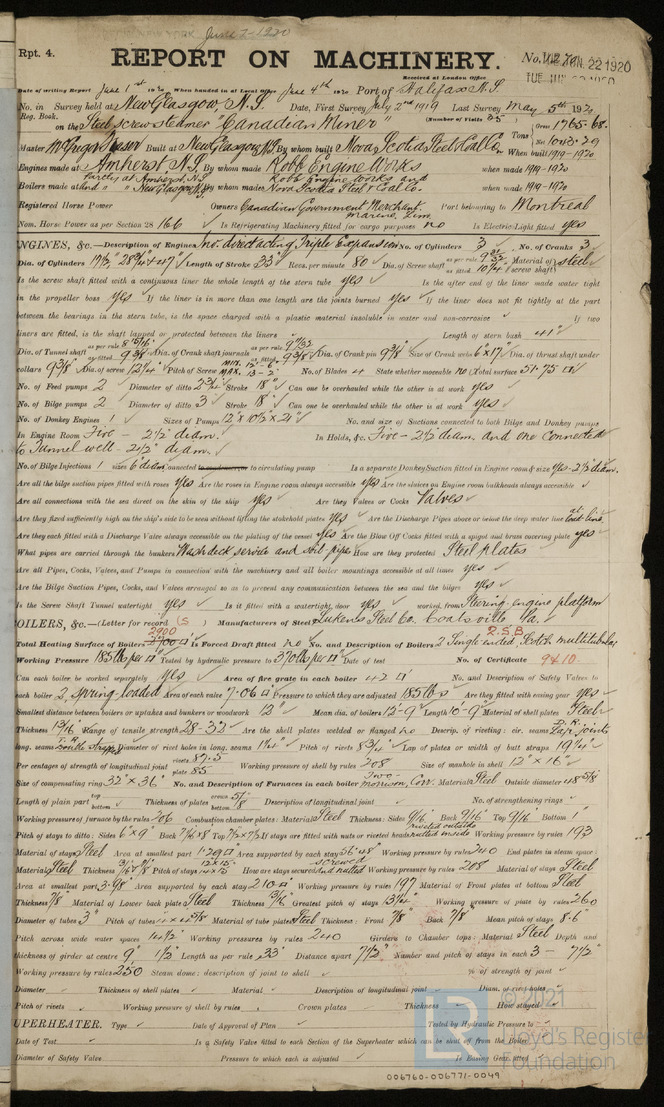 June 7-1920
Rpt. 4.
REPORT ON MACHINERY.
No.
JUN. 22 1920
Received at London Office
Date of writing Report June 1st 1920 When handed in at Local Office June 4th 1920 Port of Halifax N.S.
No. in Survey held at New Glasgow, N.S. Date, First Survey July 2nd 1919 Last Survey May 5th 1920
Reg. Book.
on the Steel screw steamer "Canadian Miner" (Number of Visits 35)
Tons Gross 1765.68
Net
Master Built at New Glasgow N.S. By whom built Nova Scotia Steel & Coal Co. When built 1919-1920
Engines made at Amherst N.S. By whom made Robb Engine Works when made 1919-1920
Boilers made at Partly at Amherst, N.S. and " " New Glasgow N.S. By whom made Robb Engine Works and Nova Scotia Steel & Coal Co. when made 1919-1920
Registered Horse Power Owners Canadian Government Merchant Marine, Lim. Port belonging to Montreal
Nom. Horse Power as per Section 28 166 Is Refrigerating Machinery fitted for cargo purposes no Is Electric Light fitted yes
ENGINES, &c.—Description of Engines Triple Expansion No. of Cylinders 3 No. of Cranks 3
Dia. of Cylinders Length of Stroke 33" Revs. per minute 80 Dia. of Screw shaft as per rule as fitted 10 1/4 Material of screw shaft steel
Is the screw shaft fitted with a continuous liner the whole length of the stern tube yes Is the after end of the liner made water tight
in the propeller boss yes If the liner is in more than one length are the joints burned yes If the liner does not fit tightly at the part
between the bearings in the stern tube, is the space charged with a plastic material insoluble in water and non-corrosive If two
liners are fitted, is the shaft lapped or protected between the liners Length of stern bush 41"
Dia. of Tunnel shaft as per rule as fitted 9 3/8 Dia. of Crank shaft journals as per rule as fitted 9 3/8 Dia. of Crank pin 9 3/8 Size of Crank webs 6"x17" Dia. of thrust shaft under
collars 9 3/8 Dia. of screw 12' 4" Pitch of Screw No. of Blades 4 State whether moveable no Total surface 51.75
No. of Feed pumps 2 Diameter of ditto Stroke 18" Can one be overhauled while the other is at work yes
No. of Bilge pumps 2 Diameter of ditto 3 Stroke 18" Can one be overhauled while the other is at work yes
No. of Donkey Engines 1 Sizes of Pumps 12"x10 1/2"x21" No. and size of Suctions connected to both Bilge and Donkey pumps
In Engine Room Five - 2 1/2" diam. In Holds, &c. Five - 2 1/2" diam. and one connected
to Tunnel well - 2 1/2" diam.
No. of Bilge Injections 1 sizes 6" diam. Connected to circulating pump Is a separate Donkey Suction fitted in Engine room & size yes - 2 1/2" diam.
Are all the bilge suction pipes fitted with roses yes Are the roses in Engine room always accessible yes Are the sluices on Engine room bulkheads always accessible
Are all connections with the sea direct on the skin of the ship yes Are they Valves or Cocks Valves
Are they fixed sufficiently high on the ship's side to be seen without lifting the stokehold plates yes Are the Discharge Pipes above or below the deep water line at load line
Are they each fitted with a Discharge Valve always accessible on the plating of the vessel yes Are the Blow Off Cocks fitted with a spigot and brass covering plate yes
What pipes are carried through the bunkers Wash deck service and soil pipe How are they protected Steel plates
Are all Pipes, Cocks, Valves, and Pumps in connection with the machinery and all boiler mountings accessible at all times yes
Are the Bilge Suction Pipes, Cocks, and Valves arranged so as to prevent any communication between the sea and the bilges yes
Is the Screw Shaft Tunnel watertight yes Is it fitted with a watertight door yes worked from Steering engine platform
BOILERS, &c.—(Letter for record (S) Manufacturers of Steel Lukens Steel Co. Coatsville Pa.
2900 2.S.B.
Total Heating Surface of Boilers Is Forced Draft fitted no No. and Description of Boilers 2 Single ended Scotch multitubular
Working Pressure 185 lbs per Tested by hydraulic pressure to 370 lbs per Date of test No. of Certificate 9410
Can each boiler be worked separately yes Area of fire grate in each boiler 42 No. and Description of Safety Valves to
each boiler 2, Spring loaded Area of each valve 7.06 Pressure to which they are adjusted 185 lbs Are they fitted with easing gear yes
Smallest distance between boilers or uptakes and bunkers or woodwork 12" Mean dia. of boilers 12'-9" Length 10'-9" Material of shell plates Steel
Thickness 1 3/16 Range of tensile strength 28-32 Are the shell plates welded or flanged no Descrip. of riveting: cir. seams D.R. Lap joints
long. seams Diameter of rivet holes in long. seams 1 1/4" Pitch of rivets 8 3/4" Lap of plates or width of butt straps 19 1/4"
Per centages of strength of longitudinal joint rivets 87.5 plate 85 Working pressure of shell by rules 208 Size of manhole in shell 12"x16"
Size of compensating ring 32"x36" No. and Description of Furnaces in each boiler Two - Morrison Corr. Material Steel Outside diameter 48 5/8
Length of plain part top bottom Thickness of plates crown bottom 5/8 Description of longitudinal joint No. of strengthening rings
Working pressure of furnace by the rules 206 Combustion chamber plates: Material Steel Thickness: Sides 9/16 Back 9/16 Top 9/16 Bottom 1"
Pitch of stays to ditto: Sides 6"x9" Back Top If stays are fitted with nuts or riveted heads riveted outside nutted inside Working pressure by rules 193
Material of stays Steel Area at smallest part 1.29 Area supported by each stay Working pressure by rules 240 End plates in steam space:
Material Steel Thickness Pitch of stays How are stays secured screwed and nutted Working pressure by rules 208 Material of stays Steel
Area at smallest part 3.98 Area supported by each stay 210 Working pressure by rules 197 Material of Front plates at bottom Steel
Thickness 7/8 Material of Lower back plate Steel Thickness 13/16 Greatest pitch of stays 13 1/4" Working pressure of plate by rules 260
Diameter of tubes 3" Pitch of tubes 4x4 5/8 Material of tube plates Steel Thickness: Front 7/8" Back 7/8" Mean pitch of stays 8.6"
Pitch across wide water spaces 14 1/2" Working pressures by rules 240 Girders to Chamber tops: Material Steel Depth and
thickness of girder at centre 9" 1 1/2" Length as per rule 33" Distance apart 7 1/2" Number and pitch of stays in each 3 - 7 1/2"
Working pressure by rules 250 Steam dome: description of joint to shell % of strength of joint
Diameter Thickness of shell plates Material Description of longitudinal joint Diam. of rivet holes
Pitch of rivets Working pressure of shell by rules Crown plates Thickness How stayed
SUPERHEATER. Type Date of Approval of Plan Tested by Hydraulic Pressure to
Date of Test Is a Safety Valve fitted to each Section of the Superheater which can be shut off from the Boiler
Diameter of Safety Valve Pressure to which each is adjusted Is Easing Gear fitted
© 2021
Lloyd's Register
Foundation
006760-006771-0049